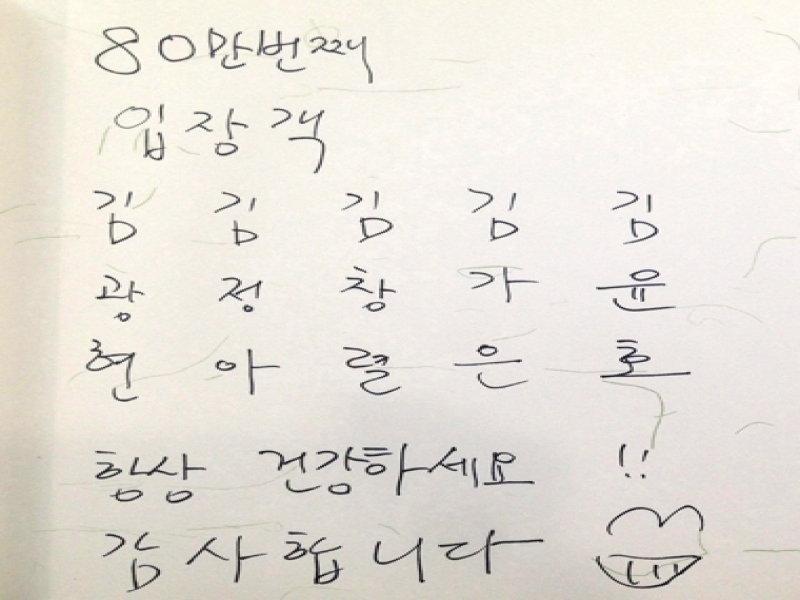 80만번째
입장객
김 김 김 김 김
광 정 창 가 윤
현 아 렬 은 호
항상 건강하세요 !!
감사합니다